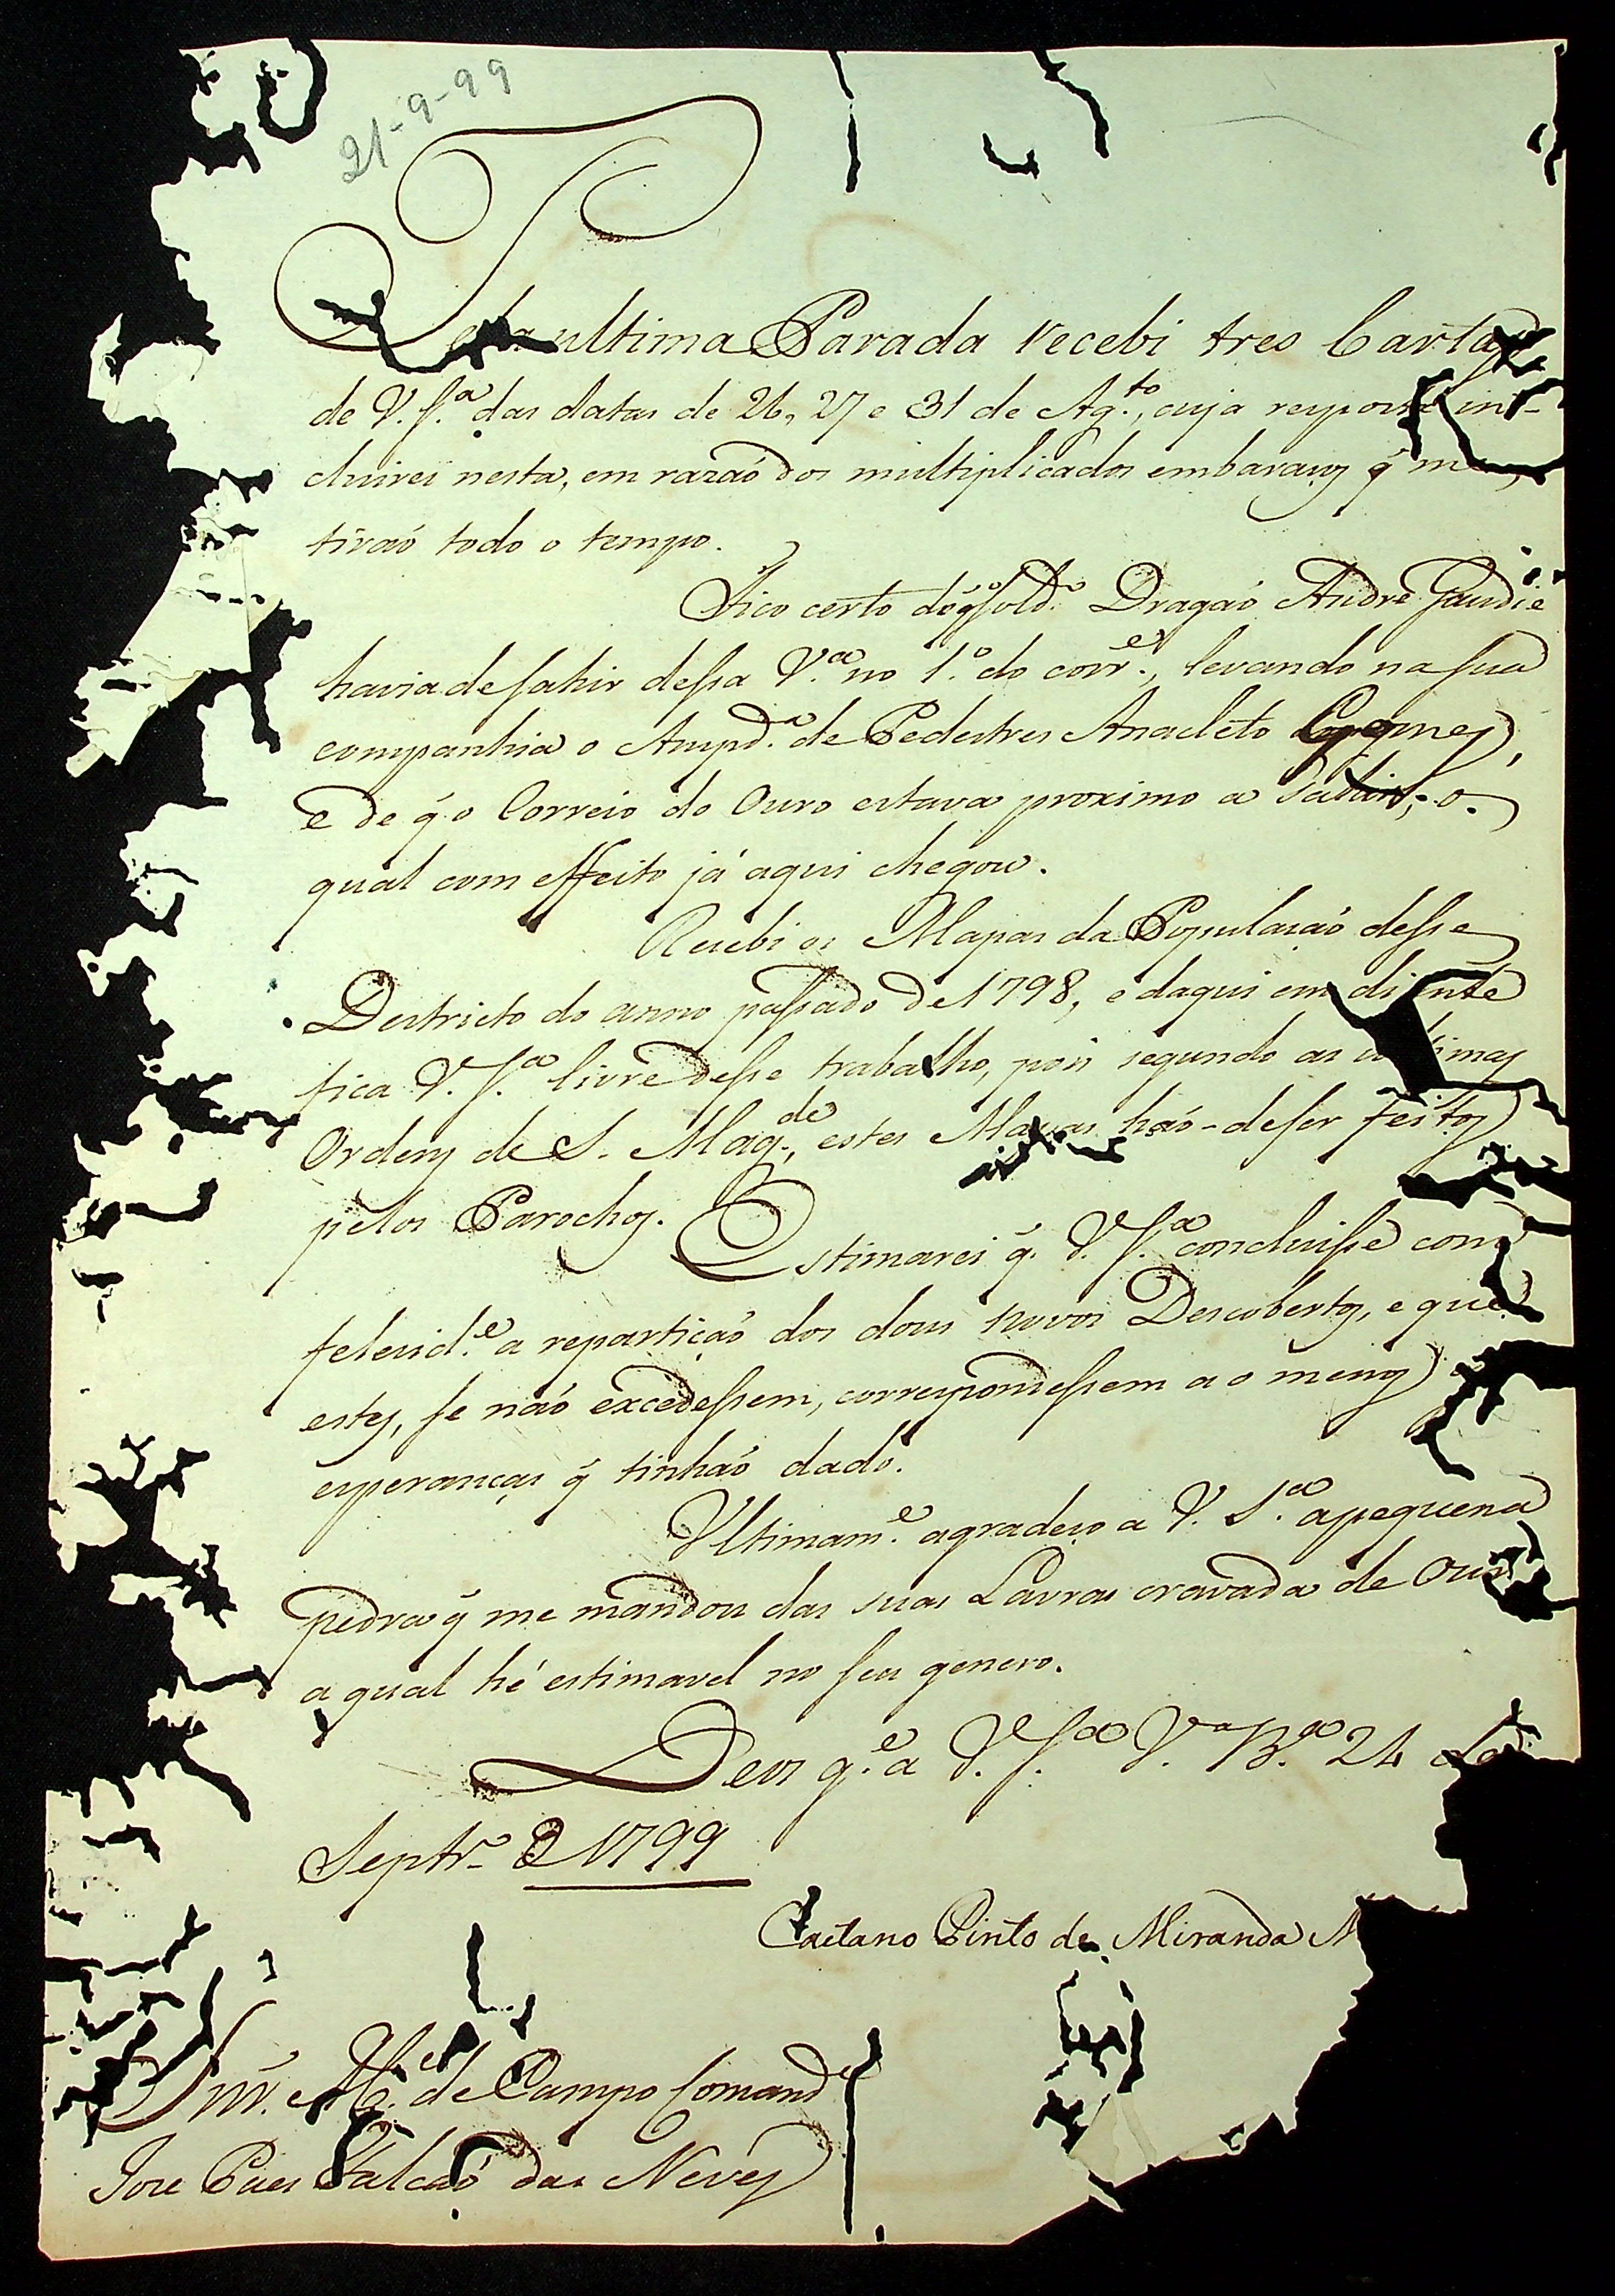 21-9-99
Pela ultima Parada recebi tres Cartas
de V. S.ª das datas de 26, 27 e 31 de Ag.to, cuja resposta in-
cluirei nesta, em razaõ dos multiplicados embaraços q̃ me
tiraõ todo o tempo.
Fico certo de q̃ o Sold.º Dragaõ Andre Gaudie
havia de sahir dessa V.ª no 1.º do corr.e, levando na sua
companhia o Anspd.ª de Pedestres Anacleto Gomes,
e de q̃ o Correio do Ouro estava proximo a sahir, o
qual com effeito já aqui chegou.
Recebi os Mapas da Populaçaõ desse
Destricto do anno passado de 1798, e daqui em diante
fica V. S.ª livre desse trabalho, pois segundo as ultimas
Ordens de S. Mag.de, estes Mapas haõ-de ser feitos
pelos Parochos. Estimarei q̃ V. S.ª concluisse com
felecid.e a repartiçaõ dos dous novos Descobertos, e que
estes, se naõ excedessem, correspondessem ao menos
esperanças q̃ tinhaõ dado.
Ultimam.e agradeço a V. S.ª a pequena
pedra q̃ me mandou das suas Lavras cravada de Ouro
a qual hé estimavel no seu genero.
Deos g.e a V. S.ª V.ª B.ª 21 de
Septr.º de 1799
Caetano Pinto de Miranda M
Snr. M.e de Campo Comand.e
Jose Paes Falcaõ das Neves